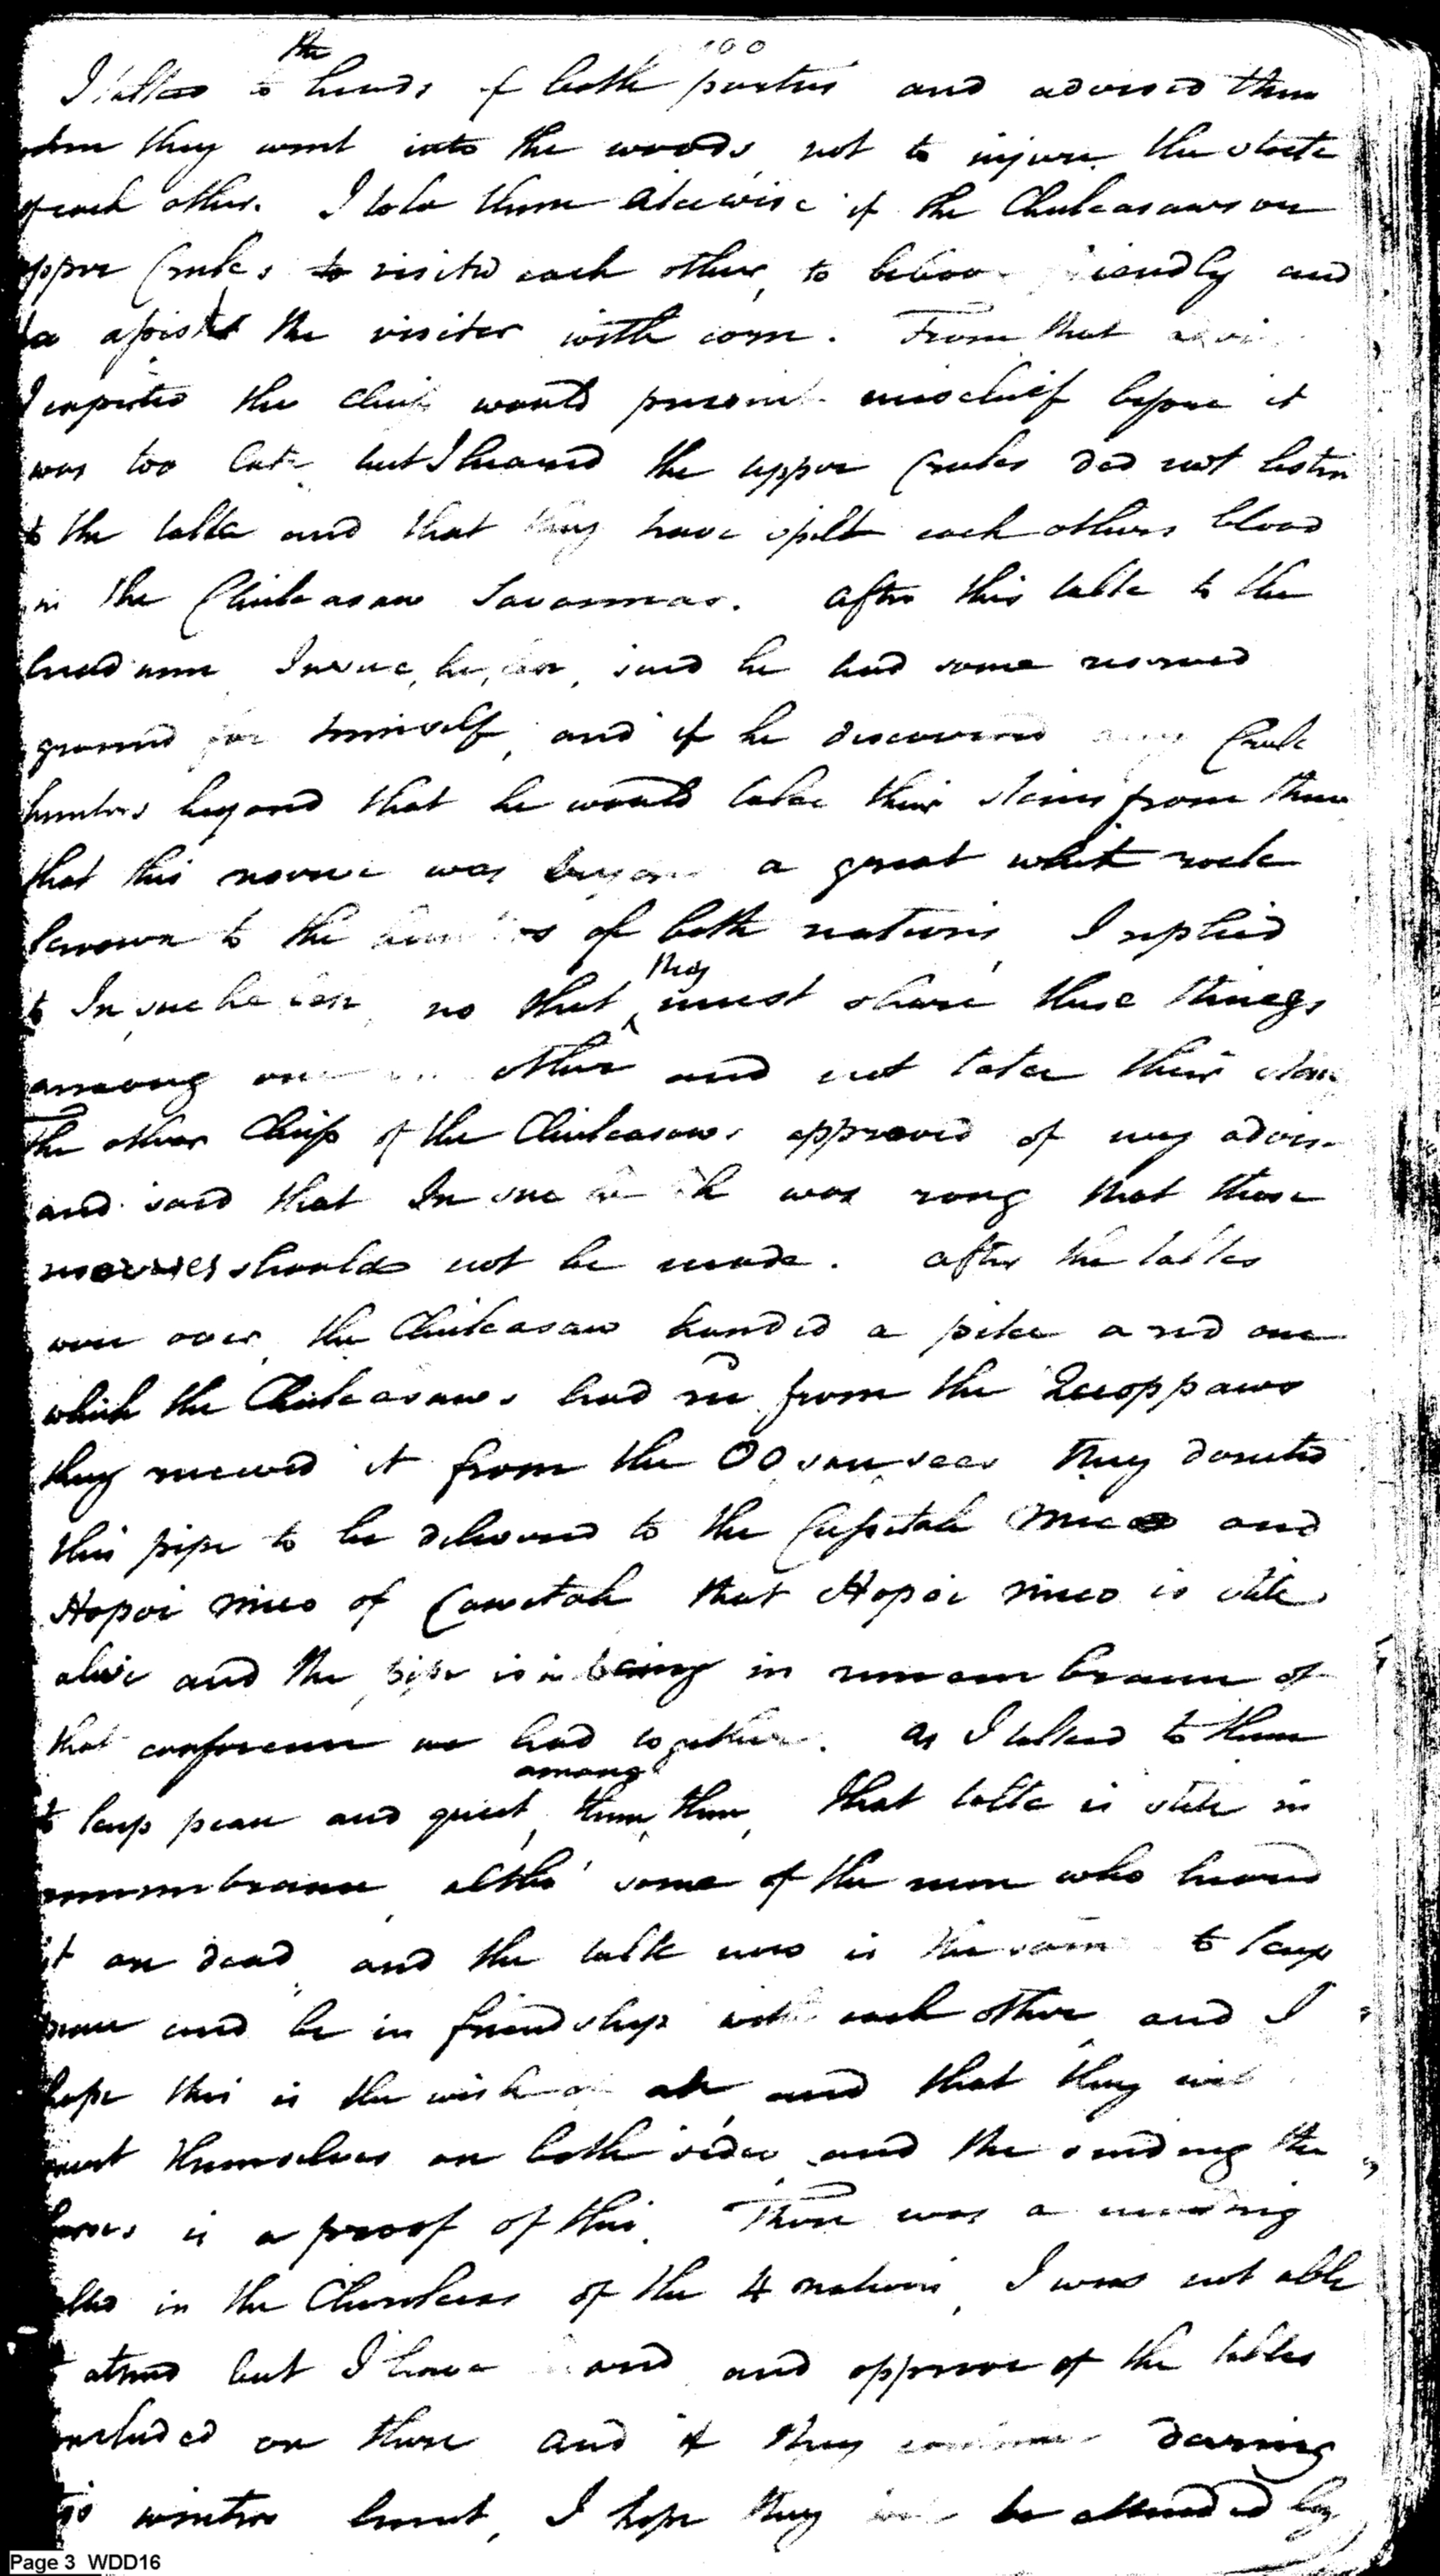 100
I talked to the heads of both parties and advised them
when they went into the woods, not to injure the stocke
of each other. I told them likewise if the Chickasaws or
upper Creeks to visited each other, to behave friendly and
to assist the visiter with corn. From that advice
I expected the chiefs would prevent mischief before it
was too late, but I heared the upper Creeks did not listen
to the talk and that they have spilt each others blood
in the Chickasaw Savannas. after this talk to the
head men said he had some reserved
ground for himself, and if he discovered any Creek
hunters beyond that he would take their skins from them
that this reserve was beyond a great white rock
known to the hunters of both nations, I replied
to no that they must share these things
among one an other and not take their skins
The other Chiefs of the Chickasaws approved of my advice
and said that was rong that those
reserves should not be made. after the talks
were over, the Chickasaw handed a pipe a red one
which the Chickasaws had recd from the Quoppaws
they received it from the they donated
this pipe to be delivered to the Cussetah Mico and
Hopoi mico of Cowetah that Hopoi mico is stile
alive and the pipe is in being in remembrance of
that conference we had together. as I talked to them
to keep peace and quiet, among them them, that talk is stile in
remembrance, altho' some of the men who heared
it are dead, and the talk now is the same to keep
peace and be in friendship with each other, and I
hope this is the wish of all, and that they will
themselves on both sides and the sending the
is a proof of this. There was a meeting
called in the Cherokees of the 4 nations, I was not able
to attend but I have heard and approve of the talks
concluded on there and if they continue during
this winters hunt, I hope they will be attended by
Page 3 WDD16